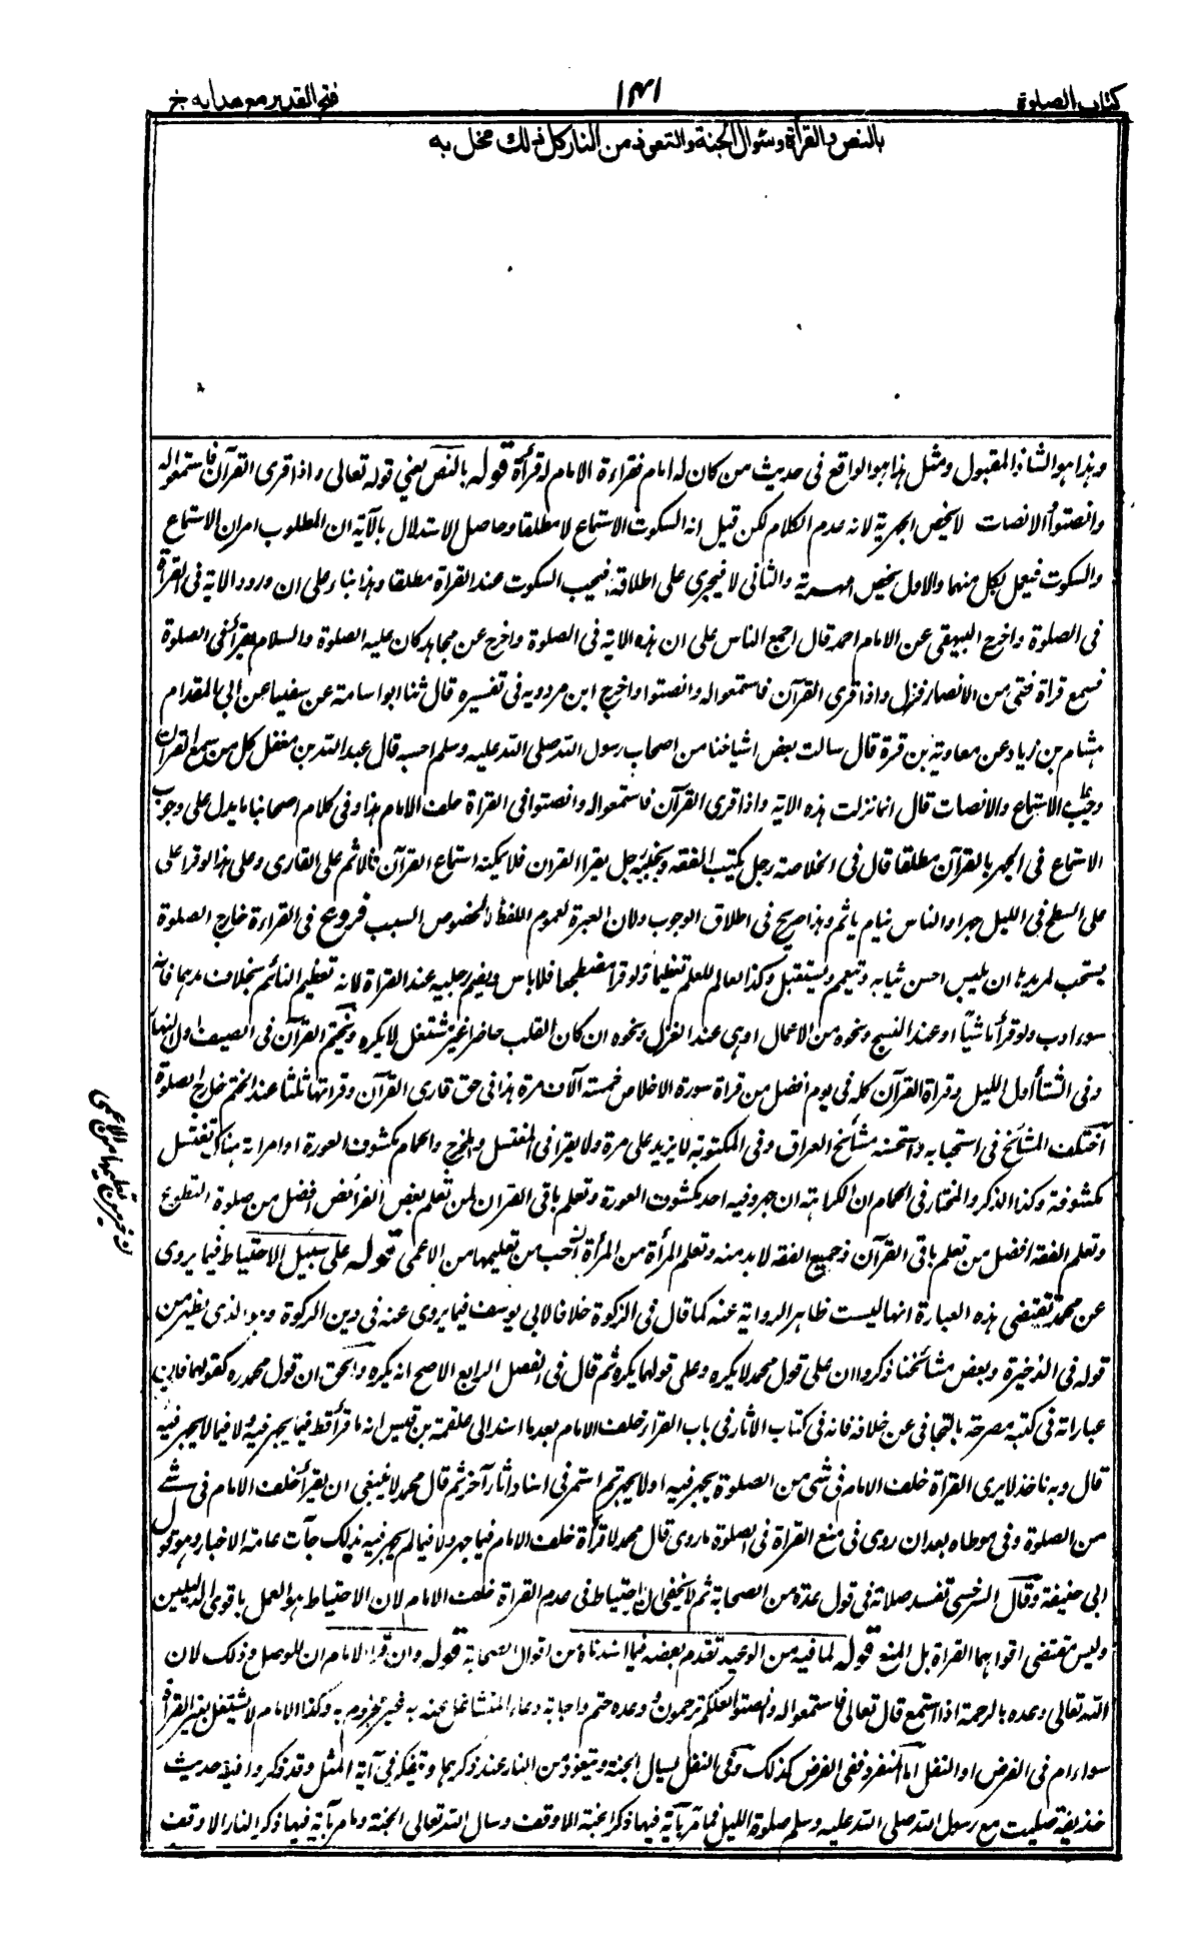 كتاب الصلوة
١٣١
فتح القدير مع هدايه ج
بالنص والقراة وسئوال الجنة والتعوذ من النار كل ذلك مخل به
وهذا هو الشاذ المقبول ومثل هذا هو الواقع فى حديث من كان له امام فقراءة الامام له قرأة قوله بالنص يعني قوله تعالى واذا قرى القرآن فاستمعوا له
وانصتوا والانصات لا يخص الجهرية لانه عدم الكلام لكن قيل انه السكوت الاستماع لا مطلقا وحاصل الاستدلال بالآية ان المطلوب امران الاستماع
والسكوت فيعمل بكل منهما والاول يخص الجهرية والثانى لا فيجرى على اطلاقه فيجب السكوت عند القراة مطلقا وهذا بناء على ان ورود الاية فى القراة
فى الصلوة واخرج البيهقى عن الامام احمد قال اجمع الناس على ان هذه الاية فى الصلوة واخرج عن مجاهد كان عليه الصلوة والسلام يقرأ فى الصلوة
فسمع قراة فتى من الانصار فنزل واذا قرى القرآن فاستمعوا له وانصتوا واخرج ابن مردويه فى تفسيره قال ثنا ابو اسامة عن سفيان عن ابى المقدام
هشام بن زياد عن معاوية بن قرة قال سالت بعض اشياخنا من اصحاب رسول الله صلى الله عليه وسلم احسبه قال عبد الله بن مغفل كل من سمع القرآن
وجب الاستماع والانصات قال انما نزلت هذه الاية واذا قرى القرآن فاستمعوا له وانصتوا فى القراة خلف الامام هذا وفى كلام اصحابنا ما يدل على وجوب
الاستماع فى الجهر بالقرآن مطلقا قال فى الخلاصة رجل يكتب الفقه وبجنبه رجل يقرا القران فلا يمكنه استماع القرآن فالاثم على القارى وعلى هذا لو قرا على
على السطح فى الليل جهرا والناس نيام ياثم وهذا صريح فى اطلاق الوجوب ولان العبرة لعموم اللفظ لا لخصوص السبب فروع فى القراءة خارج الصلوة
يستحب لمريد ان يلبس احسن ثيابه ويتعمم ويستقبل وكذا العالم للعلم تعظيما ولو قرا مضطجعا فلا باس ويضم رجليه عند القراة لانه تعظيم النائم بخلاف مدهما فانه
سوء ادب ولو قرأ ماشيا او عند النسج ونحوه من الاعمال او هى عند الغزل ونحوه ان كان القلب حاضرا غير مشتغل لا يكره ويختم القرآن فى الصيف اول النهار
وفى الشتأ اول الليل وقراة القرآن كله فى يوم افضل من قراة سورة الاخلاص خمسة آلاف مرة هذا فى حق قارى القرآن وقراتها ثلثا عند الختم خارج الصلوة
اختلف المشائخ فى استحبابه واستحسنه مشائخ العراق وفى المكتوبة لا يزيد على مرة ولا يقرا فى المغتسل والمخرج والحمام مكشوف العورة او امراته هناك تغتسل
مكشوفة وكذا الذكر والمختار فى الحمام ان الكراهة ان جهر وفيه احد مكشوف العورة وتعلم باقى القران لمن تعلم بعض الفرائض افضل من صلوة التطوع
وتعلم الفقه افضل من تعلم باقى القرآن وجميع الفقه لابد منه وتعلم المرأة من المرأة احب من تعليمها من الاعمى قوله على سبيل الاحتياط فيما يروى
عن محمد تقتضى هذه العبارة انها ليست ظاهر الرواية عنه كما قال فى الزكوة خلافا لابى يوسف فيما يروى عنه فى دين الزكوة وهو الذى يظهر من
قوله فى الذخيرة وبعض مشائخنا ذكروا ان على قول محمد لا يكره وعلى قولهما يكره ثم قال فى الفصل الرابع الاصح انه يكره والحق ان قول محمد ره كقولهما فان
عباراته فى كتبه مصرحة بالتجافى عن خلافه فانه فى كتاب الاثار فى باب القراة خلف الامام بعد ما اسند الى علقمة بن قيس انه ما قرأ قط فيما يجهر فيه ولا فيما لا يجهر فيه
قال وبه ناخذ لا يرى القراة خلف الامام فى شى من الصلوة يجهر فيه او لا يجهر ثم استمر فى اسناد آثار آخر ثم قال محمد لا ينبغى ان يقرأ خلف الامام فى شئ
من الصلوة وفى موطاه بعد ان روى فى منع القراة فى الصلوة ما روى قال محمد لا قرأة خلف الامام فيما جهر ولا فيما لم يجهر فيه بذلك جآت عامة الاخبار وهو قول
ابى حنيفة وقال السرخسى تفسد صلاته فى قول عدة من الصحابة ثم لا يخفى ان الاحتياط فى عدم القراة خلف الامام لان الاحتياط هو العمل باقوى الدليلين
وليس مقتضى اقواهما القراة بل المنع قوله لما فيه من الوعيد تقدم بعضه فيما اسندناه من اقوال الصحابة قوله وان قرا الامام ان للوصل وذلك لان
الله تعالى وعده بالرحمة اذا استمع قال تعالى فاستمعوا له وانصتوا لعلكم ترحمون ووعده حتم واجابة دعاء المتشاغل عنه به غير مجزوم به وكذا الامام لا يشتغل بغير القراة
سواء ام فى الفرض او النفل اما المنفرد ففى الفرض كذلك وفى النفل يسال الجنة ويتعوذ من النار عند ذكرهما ويتفكر فى آية المثل وقد ذكروا فيه حديث
حذيفة صليت مع رسول الله صلى الله عليه وسلم صلوة الليل فما مر بآية فيها ذكر الجنة الا وقف وسال الله تعالى الجنة وما مر بآية فيها ذكر النار الا وقف
تعليمها من الاعمى